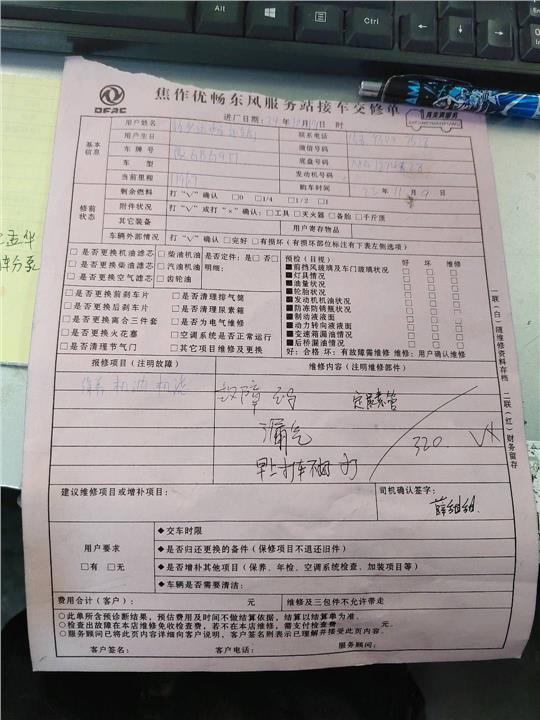 DFAC
焦作优畅东风服务站接车交修单
进厂日期: 24 年 月 日 时
基本信息
用户姓名
联系电话
用户生日
微信号码
车牌号
底盘号码
车型
发动机号码
当前里程
购车时间
年 11 月 9 日
修前状态
剩余燃料 打"V"确认 □0 □1/4 □1/2 □1
附件状况 打"V"或打"×"确认: □工具 □灭火器 □备胎 □千斤顶
其它装备
用户寄存物品
车辆外部情况 打"V"确认 □完好 □有损坏 (有损坏部位标注有下表左侧选项)
□是否更换机油滤芯 □柴油机油 是否定件: □是 □否
□是否更换柴油滤芯 □汽油机油 明细:
□是否更换空气滤芯 □齿轮油
□是否更换前刹车片 □是否清理排气筒
□是否更换后刹车片 □是否清理尿素箱
□是否更换离合三件套 □是否为电气维修
□是否更换火花塞 □空调系统是否正常运行
□是否清理节气门 □其它项目维修及更换
预检(目视) 好 坏 维修
■前挡风玻璃及车门玻璃状况
■灯具情况
■油量状况
■轮胎状况
■发动机机油状况
■防冻防锈瓶状况
■制动液液面
■动力转向液液面
■变速箱漏油情况
■后桥漏油情况
好: 合格 坏: 有故障需维修 维修: 用户确认维修
报修项目 (注明故障)
维修内容 (注明维修部件)
保养 机油 机滤
故障码
漏气
320
建议维修项目或增补项目:
司机确认签字:
用户要求
□有 □无
◆交车时限
◆是否归还更换的备件 (保修项目不退还旧件)
◆是否增补其他项目 (保养、年检、空调系统检查、加装项目等)
◆车辆是否需要清洁:
费用合计 (客户): 元
维修及三包件不允许带走
○此单所含预诊断结果, 预估费用及时间不做结算依据, 结算以结算单为准.
○检查出故障在本店维修免收检查费, 若不在本店维修, 需支付检查费 元.
○服务顾问已将此页内容详细向客户说明, 客户签名则表示已理解并接受此页内容.
客户签名: 客户电话: 服务顾问:
一联(白)随维修资料存档
二联(红)财务留存
Ctrl
Alt